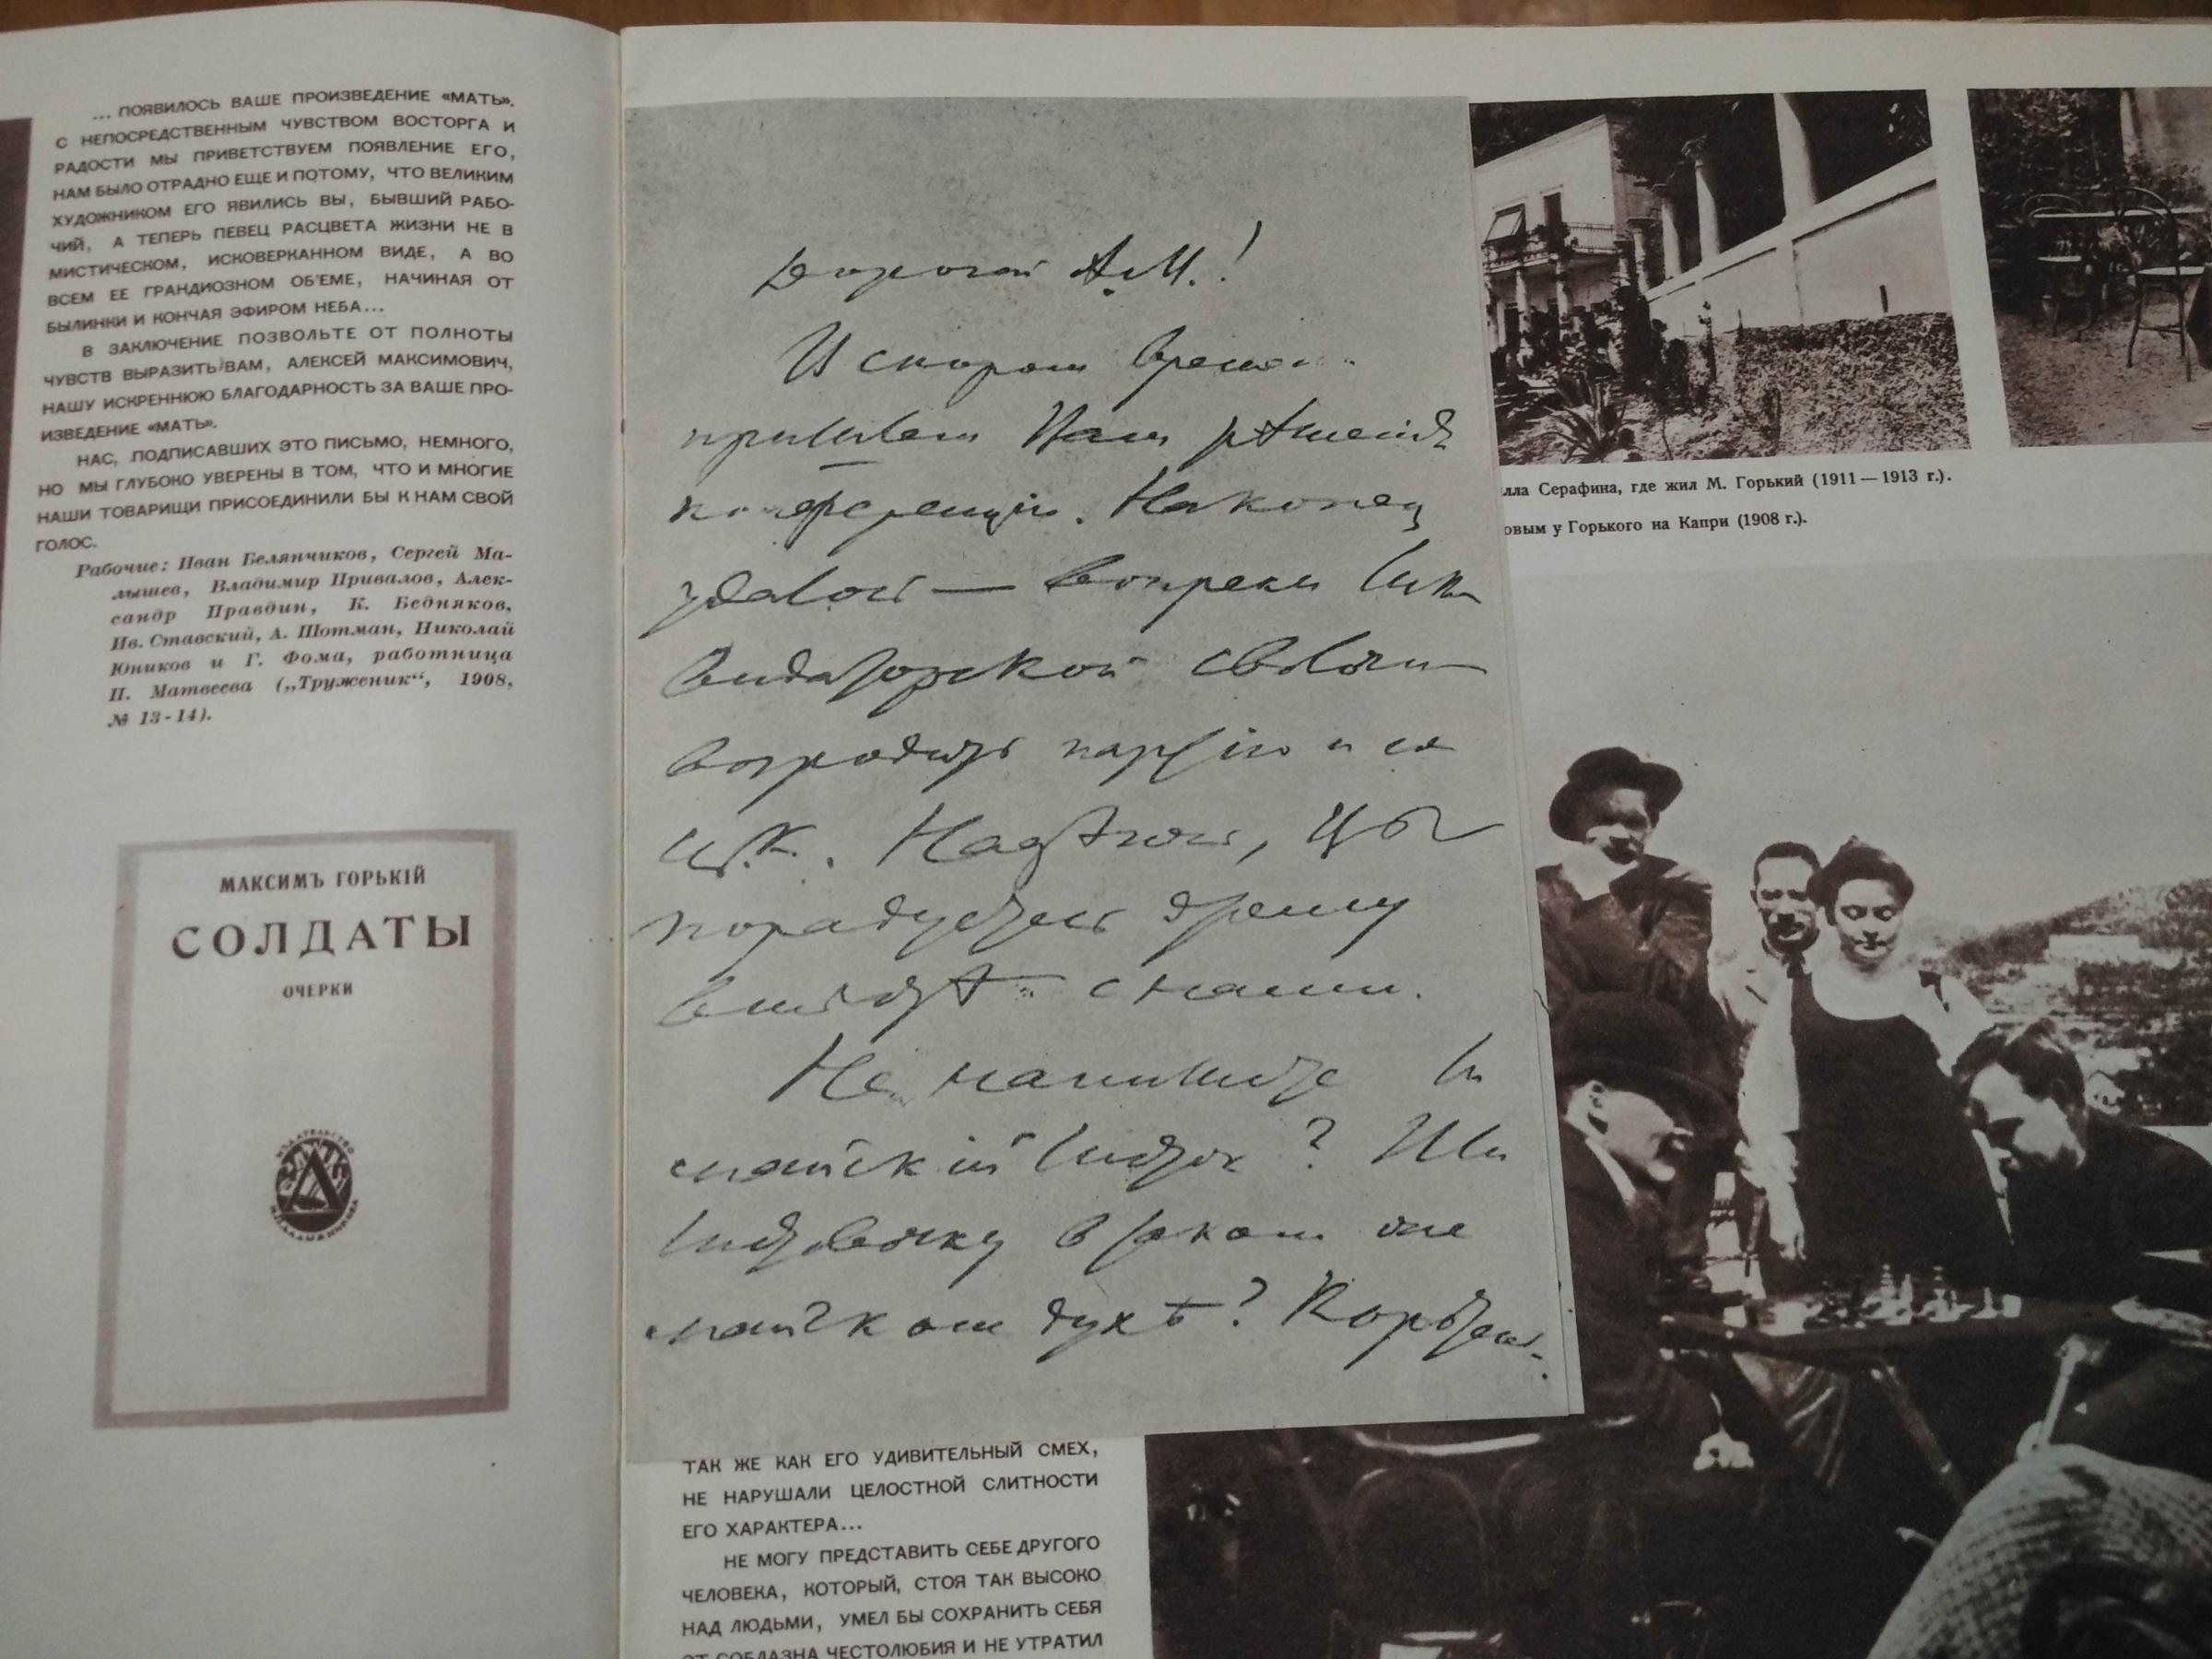 ... ПОЯВИЛОСЬ ВАШЕ ПРОИЗВЕДЕНИЕ «МАТЬ».
С НЕПОСРЕДСТВЕННЫМ ЧУВСТВОМ ВОСТОРГА И
РАДОСТИ МЫ ПРИВЕТСТВУЕМ ПОЯВЛЕНИЕ ЕГО,
НАМ БЫЛО ОТРАДНО ЕЩЕ И ПОТОМУ, ЧТО ВЕЛИКИМ
ХУДОЖНИКОМ ЕГО ЯВИЛИСЬ ВЫ, БЫВШИЙ РАБО-
ЧИЙ, А ТЕПЕРЬ ПЕВЕЦ РАСЦВЕТА ЖИЗНИ НЕ В
МИСТИЧЕСКОМ, ИСКОВЕРКАННОМ ВИДЕ, А ВО
ВСЕМ ЕЕ ГРАНДИОЗНОМ ОБ'ЕМЕ, НАЧИНАЯ ОТ
БЫЛИНКИ И КОНЧАЯ ЭФИРОМ НЕБА...
В ЗАКЛЮЧЕНИЕ ПОЗВОЛЬТЕ ОТ ПОЛНОТЫ
ЧУВСТВ ВЫРАЗИТЬ ВАМ, АЛЕКСЕЙ МАКСИМОВИЧ,
НАШУ ИСКРЕННЮЮ БЛАГОДАРНОСТЬ ЗА ВАШЕ ПРО-
ИЗВЕДЕНИЕ «МАТЬ».
НАС, ПОДПИСАВШИХ ЭТО ПИСЬМО, НЕМНОГО,
НО МЫ ГЛУБОКО УВЕРЕНЫ В ТОМ, ЧТО И МНОГИЕ
НАШИ ТОВАРИЩИ ПРИСОЕДИНИЛИ БЫ К НАМ СВОЙ
ГОЛОС.
Рабочие: Иван Белянчиков, Сергей Ма-
лышев, Владимир Привалов, Алек-
сандр Правдин, К. Бедняков,
Ив. Ставский, А. Шотман, Николай
Юников и Г. Фома, работница
П. Матвеева („Труженик“, 1908,
№ 13-14).
МАКСИМЪ ГОРЬКІЙ
СОЛДАТЫ
ОЧЕРКИ
Дорогой А.М.!
В скором времени
пришлем Вам рѣшенія
конференции. Наконец
удалось — вопреки лик-
видаторской сволочи —
возродить партію и ея
Ц.К. Надѣюсь, Вы
порадуетесь этому
вмѣстѣ с нами.
Не напишете ли
майский листок? Или
листовочку в таком же
майском духѣ? Коротень-
лла Серафина, где жил М. Горький (1911—1913 г.).
овым у Горького на Капри (1908 г.).
ТАК ЖЕ КАК ЕГО УДИВИТЕЛЬНЫЙ СМЕХ,
НЕ НАРУШАЛИ ЦЕЛОСТНОЙ СЛИТНОСТИ
ЕГО ХАРАКТЕРА...
НЕ МОГУ ПРЕДСТАВИТЬ СЕБЕ ДРУГОГО
ЧЕЛОВЕКА, КОТОРЫЙ, СТОЯ ТАК ВЫСОКО
НАД ЛЮДЬМИ, УМЕЛ БЫ СОХРАНИТЬ СЕБЯ
ОТ СОБЛАЗНА ЧЕСТОЛЮБИЯ И НЕ УТРАТИЛ